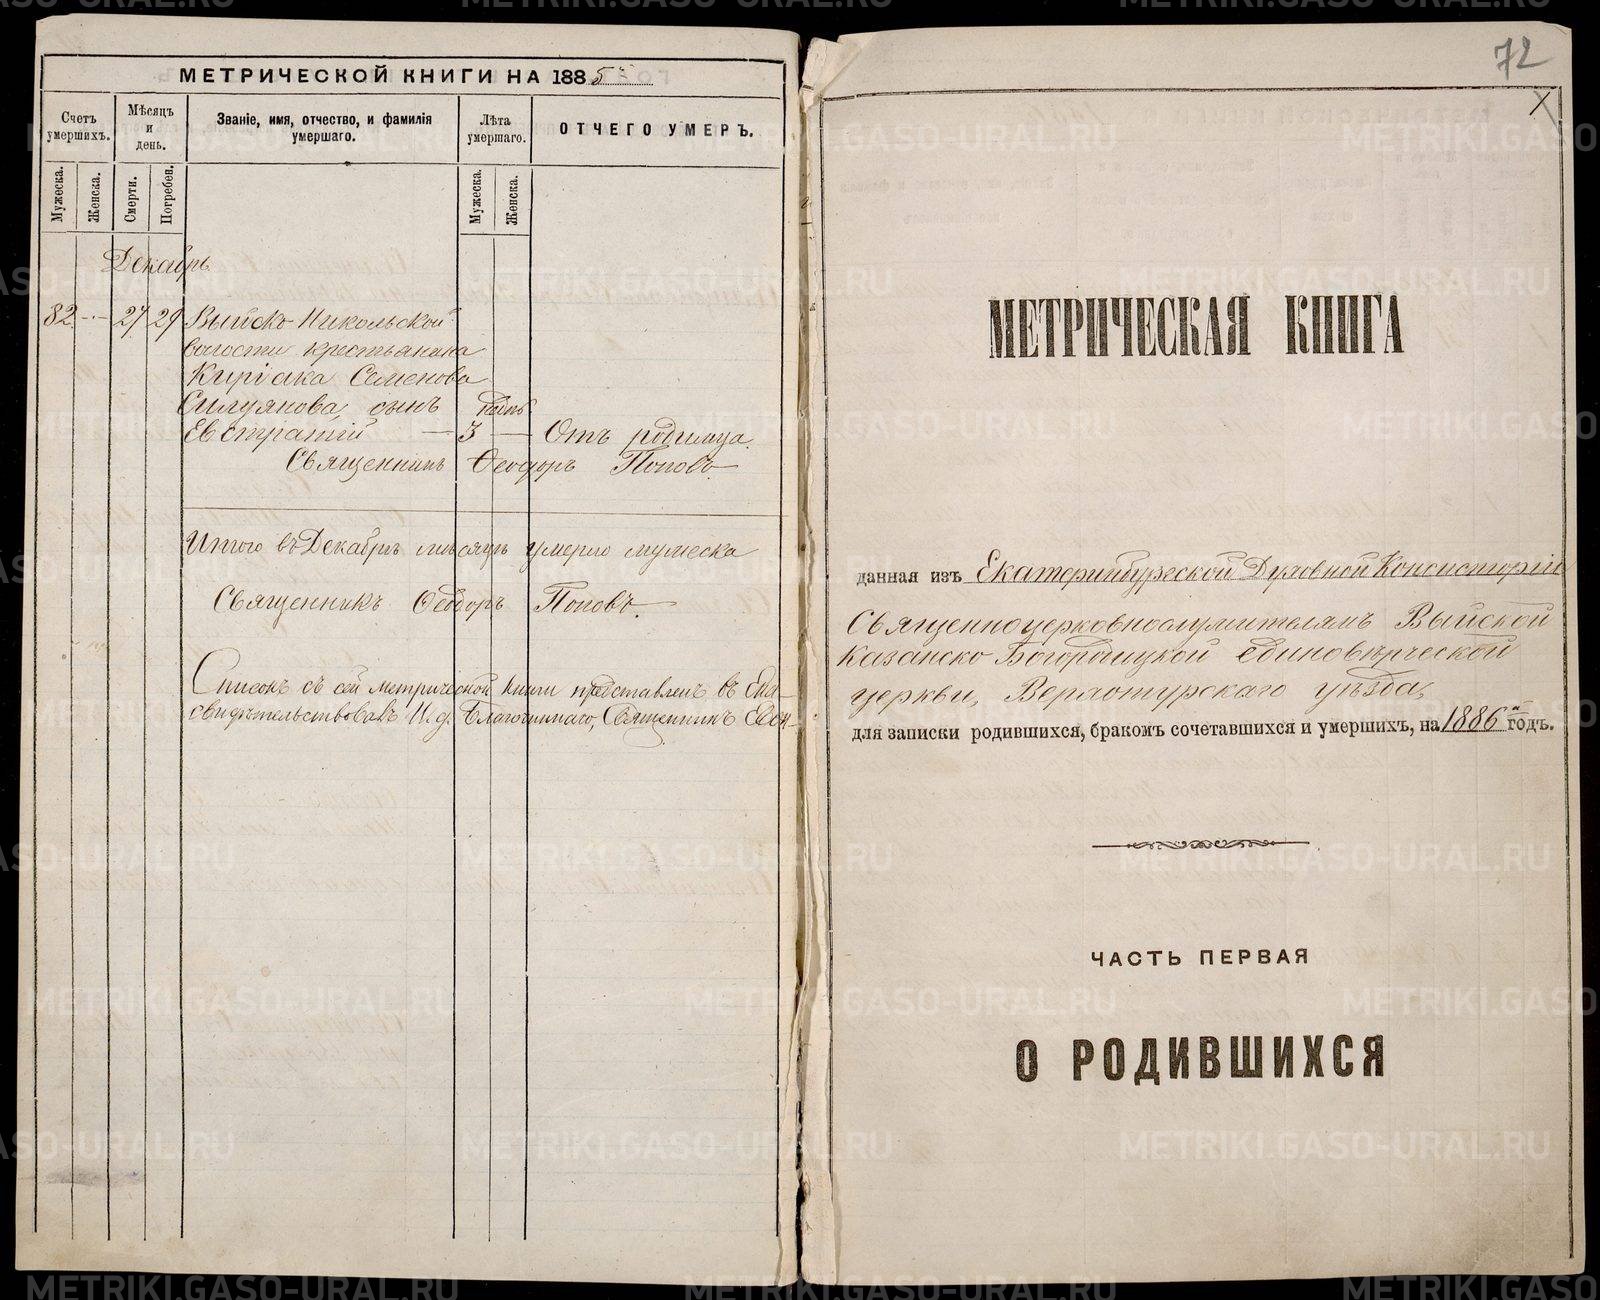 МЕТРИЧЕСКОЙ КНИГИ НА 1885
Счетъ умершихъ.
Мѣсяцъ и день.
Званіе, имя, отчество, и фамилія умершаго.
Лѣта умершаго.
ОТЧЕГО УМЕРЪ.
Мужеска.
Женска.
Смерти.
Погребен.
Мужеска.
Женска.
Декабрь
82 - - 27 29 Выйско-Никольской
волости крестьянина
Киріака Семенова
Силуянова сынъ
Евстратій — 3 — Отъ родимца.
Священникъ Ѳеодоръ Поповъ.
Итого въ Декабрѣ мѣсяцѣ умерло мужеска
Священникъ Ѳеодоръ Поповъ.
Списокъ съ сей метрической книги представленъ въ Ека-
свидѣтельствовалъ И. д. Благочиннаго, Священникъ
72
МЕТРИЧЕСКАЯ КНИГА
данная изъ Екатеринбургской Духовной Консисторіи
Священноцерковнослужителямъ Выйской
Казанско-Богородицкой единовѣрческой
церкви, Верхотурскаго уѣзда,
для записки родившихся, бракомъ сочетавшихся и умершихъ, на 1886й годъ.
ЧАСТЬ ПЕРВАЯ
О РОДИВШИХСЯ
METRIKI.GASO-URAL.RU